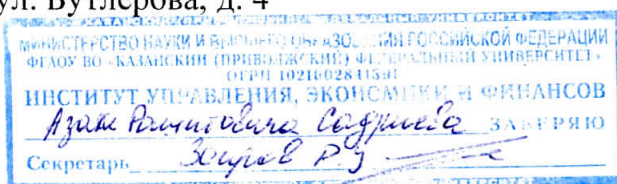 ул. Бутлерова, д. 4
МИНИСТЕРСТВО НАУКИ И ВЫСШЕГО ОБРАЗОВАНИЯ РОССИЙСКОЙ ФЕДЕРАЦИИ
ФГАОУ ВО «КАЗАНСКИЙ (ПРИВОЛЖСКИЙ) ФЕДЕРАЛЬНЫЙ УНИВЕРСИТЕТ»
ОГРН 1021602841391
ИНСТИТУТ УПРАВЛЕНИЯ, ЭКОНОМИКИ И ФИНАНСОВ
Садриева ЗАВЕРЯЮ
Секретарь